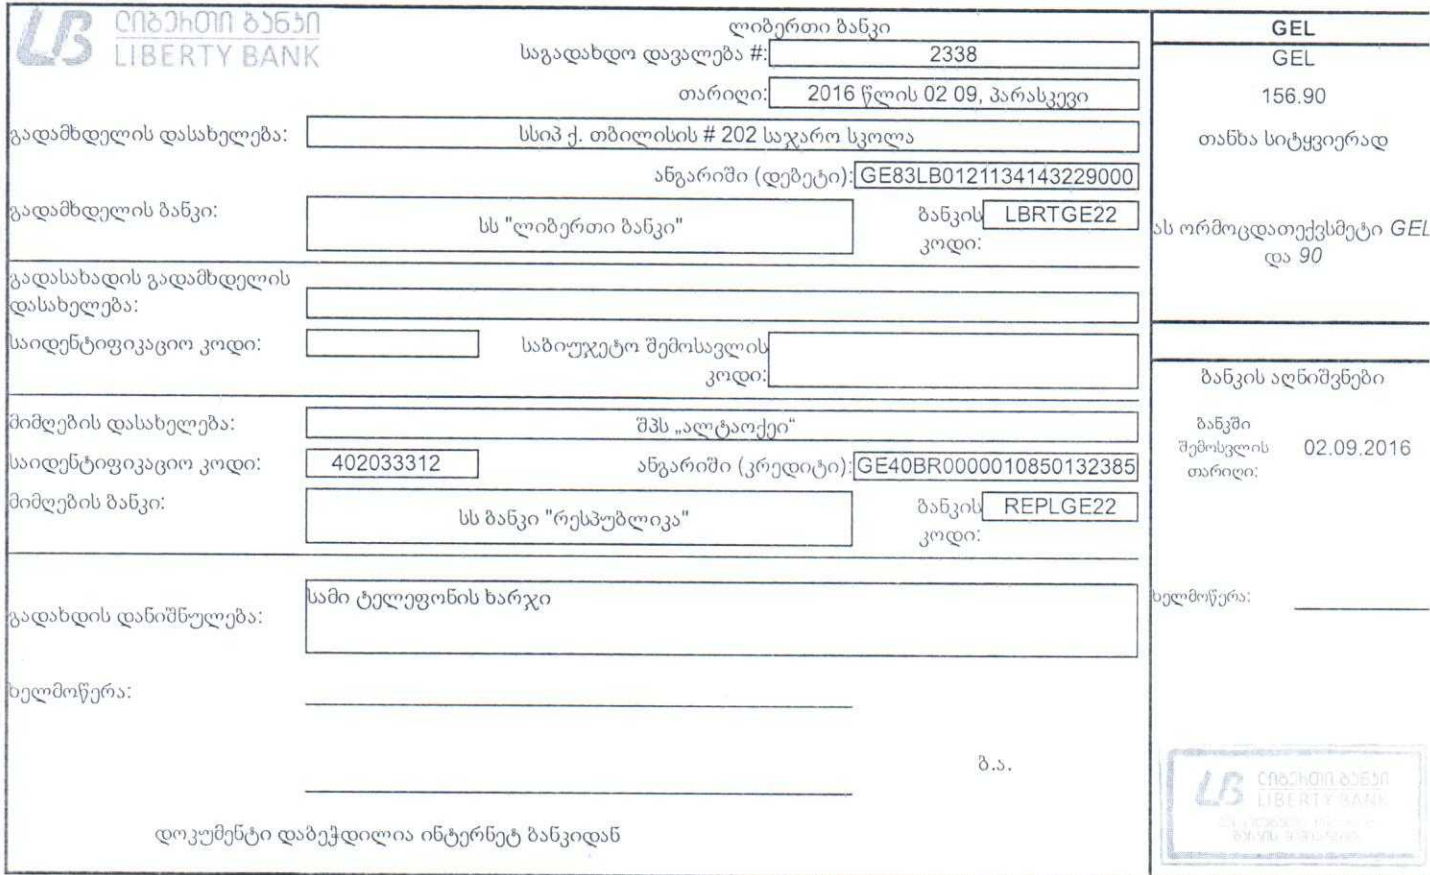 ლიბერთი ბანკი
LIBERTY BANK
ლიბერთი ბანკი
საგადახდო დავალება #: 2338
თარიღი: 2016 წლის 02 09, პარასკევი
გადამხდელის დასახელება: სსიპ ქ. თბილისის # 202 საჯარო სკოლა
ანგარიში (დებეტი): GE83LB0121134143229000
გადამხდელის ბანკი: სს "ლიბერთი ბანკი" ბანკის კოდი: LBRTGE22
გადასახადის გადამხდელის
დასახელება:
საიდენტიფიკაციო კოდი: საბიუჯეტო შემოსავლის
კოდი:
მიმღების დასახელება: შპს „ალტაოქეი“
საიდენტიფიკაციო კოდი: 402033312 ანგარიში (კრედიტი): GE40BR0000010850132385
მიმღების ბანკი: სს ბანკი "რესპუბლიკა" ბანკის კოდი: REPLGE22
გადახდის დანიშნულება: სამი ტელეფონის ხარჯი
ხელმოწერა:
ბ.ა.
დოკუმენტი დაბეჭდილია ინტერნეტ ბანკიდან
GEL
GEL
156.90
თანხა სიტყვიერად
ას ორმოცდათექვსმეტი GEL
და 90
ბანკის აღნიშვნები
ბანკში
შემოსვლის 02.09.2016
თარიღი:
ხელმოწერა:
ლიბერთი ბანკი
LIBERTY BANK